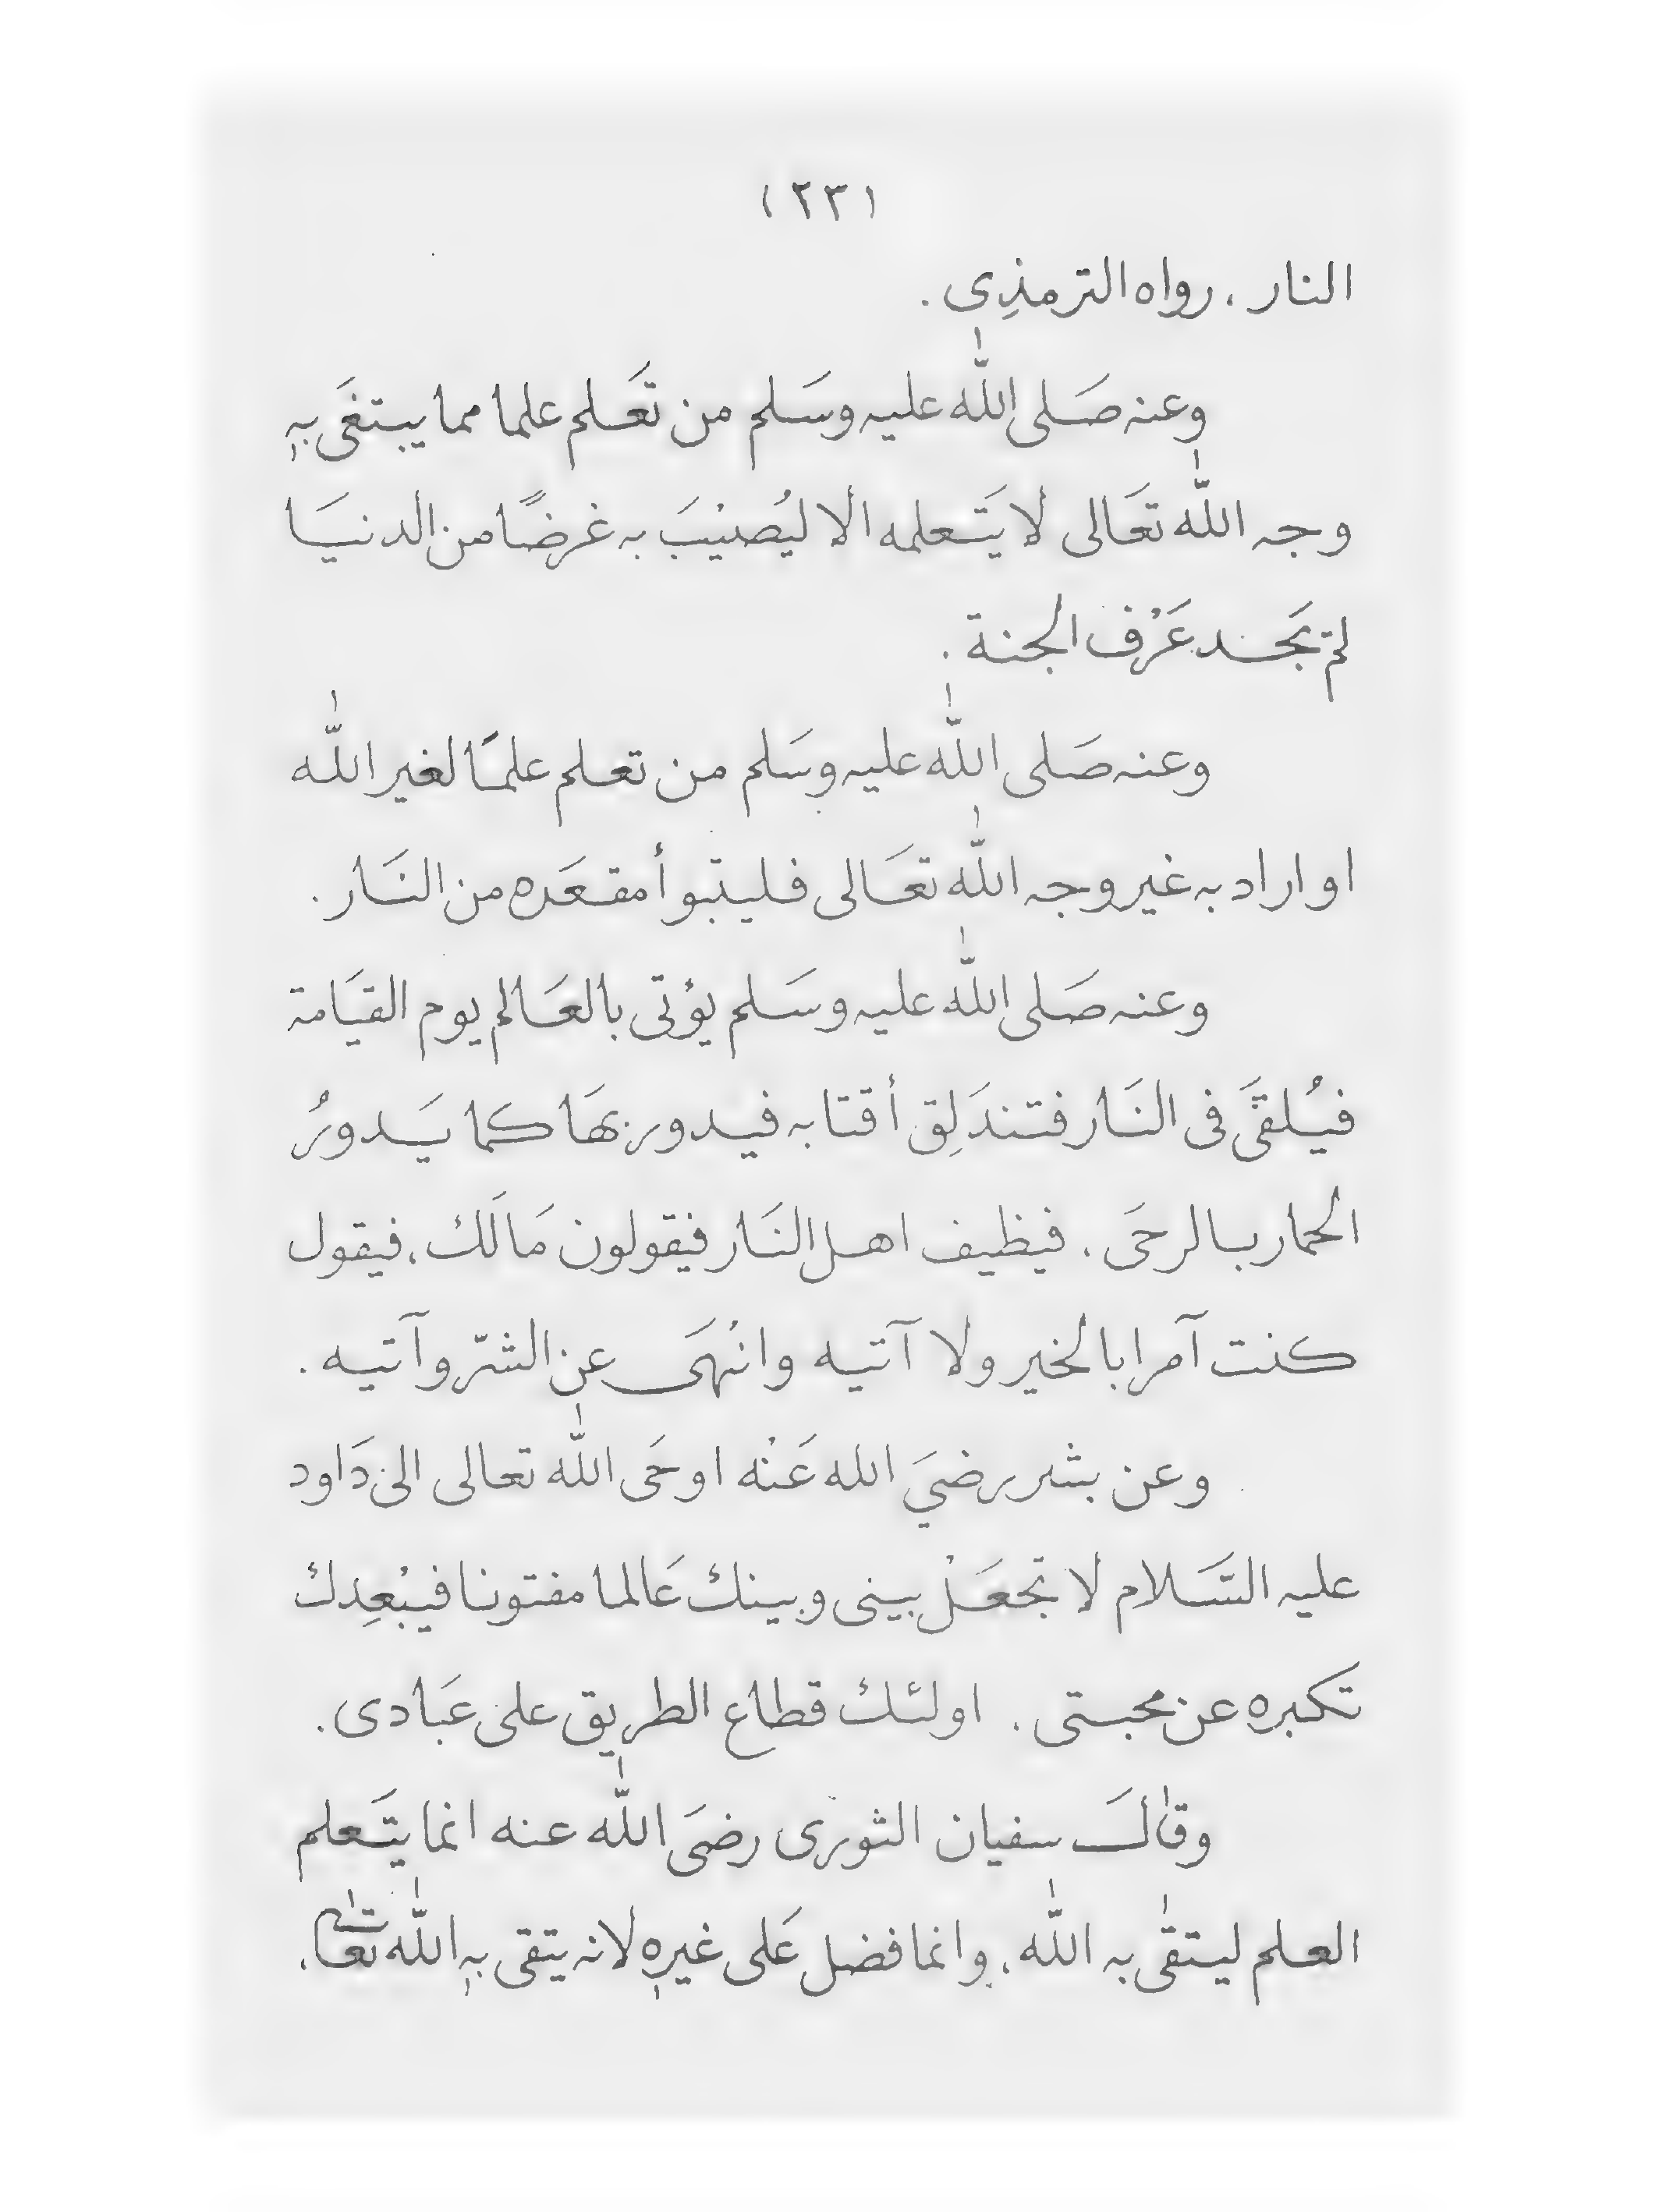 (٢٣)
النار . رواه الترمذِى .
وعنه صَلى الله عليه وسَلم من تَعَلم علما مما يبتغَى به
وجه الله تعَالى لا يَتَعلمه الا ليُصيْبَ به غرضًا من الدنيَا
لم يَجد عَرْف الجنة .
وعنه صَلى الله عليه وسَلم من تعلم علمًا لغير الله
او اراد به غير وجه الله تعَالى فليتبوأ مقعَده من النَار .
وعنه صَلى الله عليه وسَلم يؤتى بالعَالم يوم القيَامة
فيُلقَى فى النَار فتندَلِق أقتابه فيدور بهَا كما يَدورُ
الحمار بالرحَى . فيظيف اهل النَار فيقولون مَا لَك . فيقول
كنت آمرا بالخير ولا آتيه وانْهَى عن الشرّ وآتيه .
وعن بشر رضيَ الله عَنْه اوحَى الله تعالى الى دَاود
عليه السَّلام لا تجعَلْ بينى وبينك عَالما مفتونا فيبْعِدك
تكبره عن محبتى . اولئك قطاع الطريق على عبَادى .
وقالَ سفيان الثورى رضىَ الله عنه انما يتَعلم
العلم ليتقى به الله . وانما فضل عَلى غيره لانه يتقى به الله تعَالى .